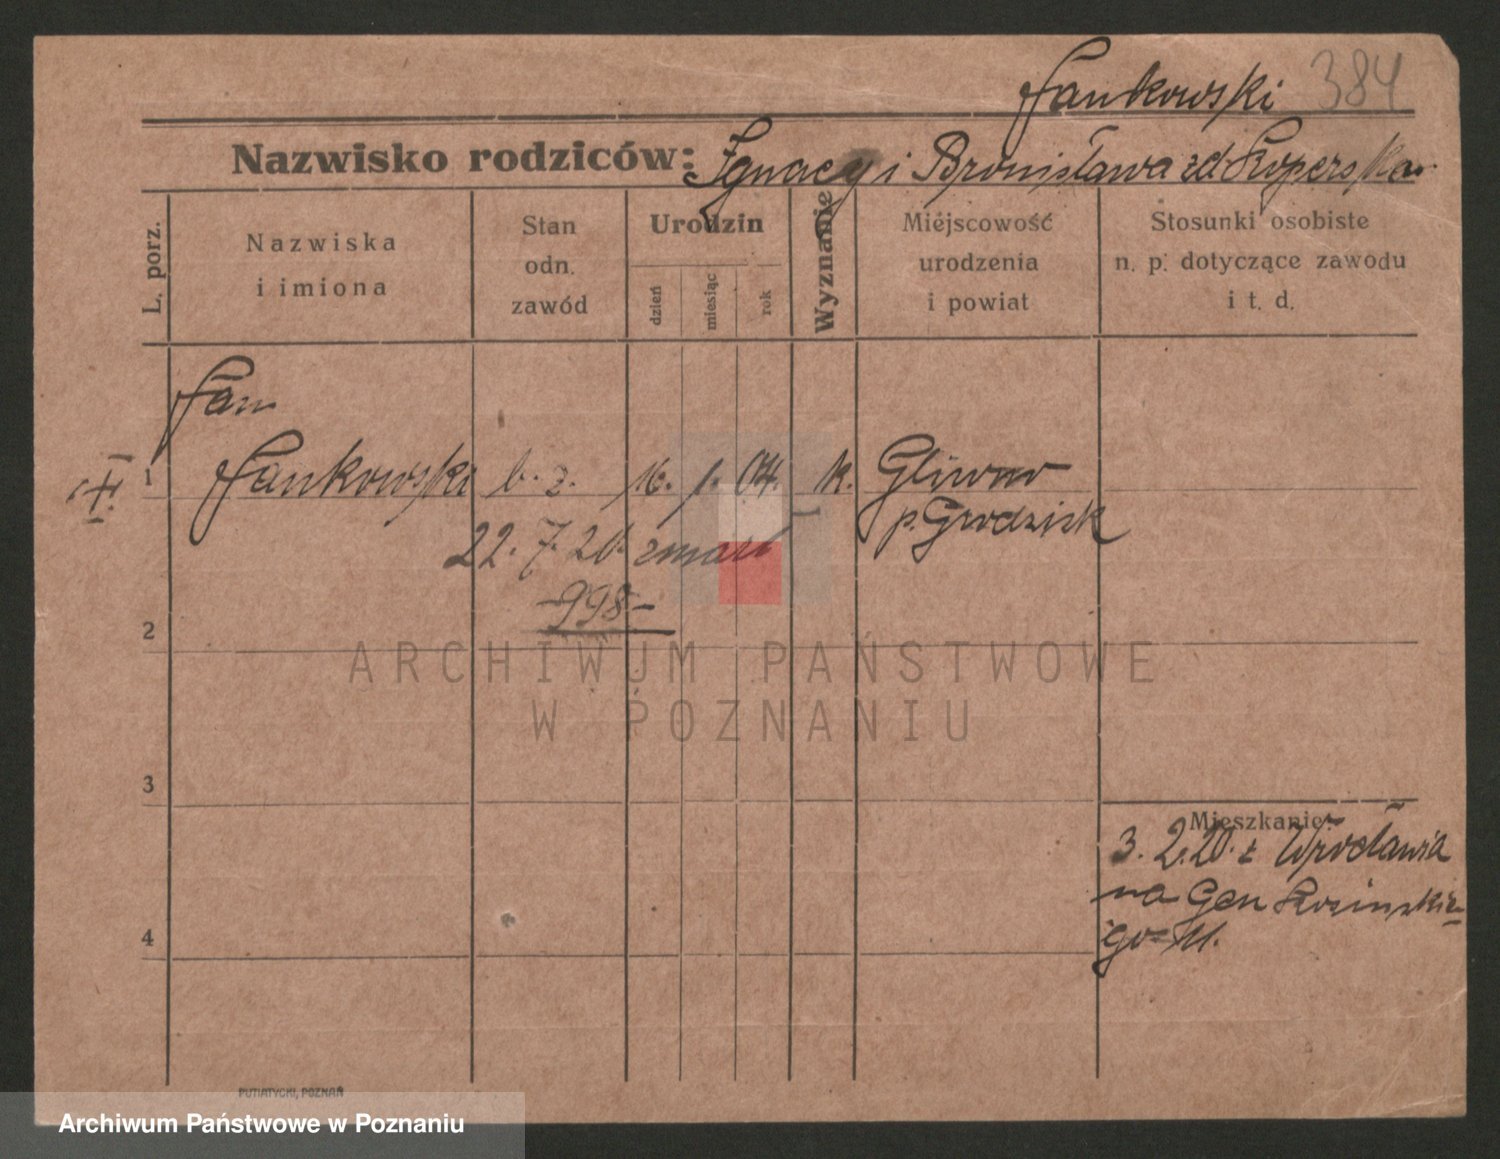 Jankowski 384
Nazwisko rodziców: Ignacy i Bronisława zd Koperska
L. porz.
Nazwiska
i imiona
Stan
odn.
zawód
Urodzin
dzień
miesiąc
rok
Wyznanie
Miejscowość
urodzenia
i powiat
Stosunki osobiste
n. p. dotyczące zawodu
i t. d.
Jan
1 Jankowski b. z. 16. 1. 04. k. Gliwno
p. Grodzisk
22. 7. 20. zmarł
-998-
2
3
4
Mieszkanie:
3. 2. 20. z Wrocławia
na Gen Kosinskie-
go
ARCHIWUM PAŃSTWOWE
W POZNANIU
PUTIATYCKI, POZNAŃ
Archiwum Państwowe w Poznaniu